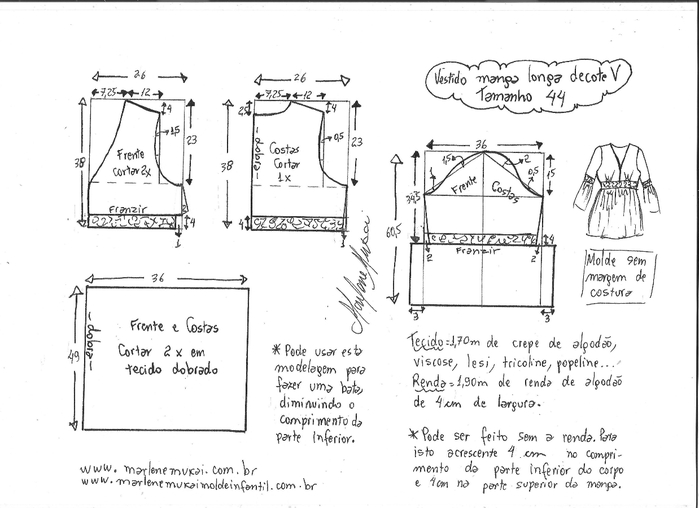 Vestido manga longa decote V
Tamanho 44
26
7,25
12
4
1,5
38
23
Frente
cortar 2x
Franzir
2
4
1
26
7,25
12
2,5
4
0,5
38
23
dobra
Costas
Cortar
1x
4
4
1
36
1,5
2
1
0,5
15
Frente
Costas
60,5
Franzir
2
2
4
3
3
Molde sem
margem de
costura
Marlene Mukai
36
49
dobra
Frente e Costas
Cortar 2 x em
tecido dobrado
* Pode usar esta
modelagem para
fazer uma bata,
diminuindo o
comprimento da
parte inferior.
Tecido=1,70m de crepe de algodão,
viscose, lesi, tricoline, popeline...
Renda=1,90m de renda de algodão
de 4cm de largura.
* Pode ser feito sem a renda. Para
isto acrescente 4 cm no compri-
mento da parte inferior do corpo
e 4cm na parte superior da manga.
www.marlenemukai.com.br
www.marlenemukaimoldeinfantil.com.br